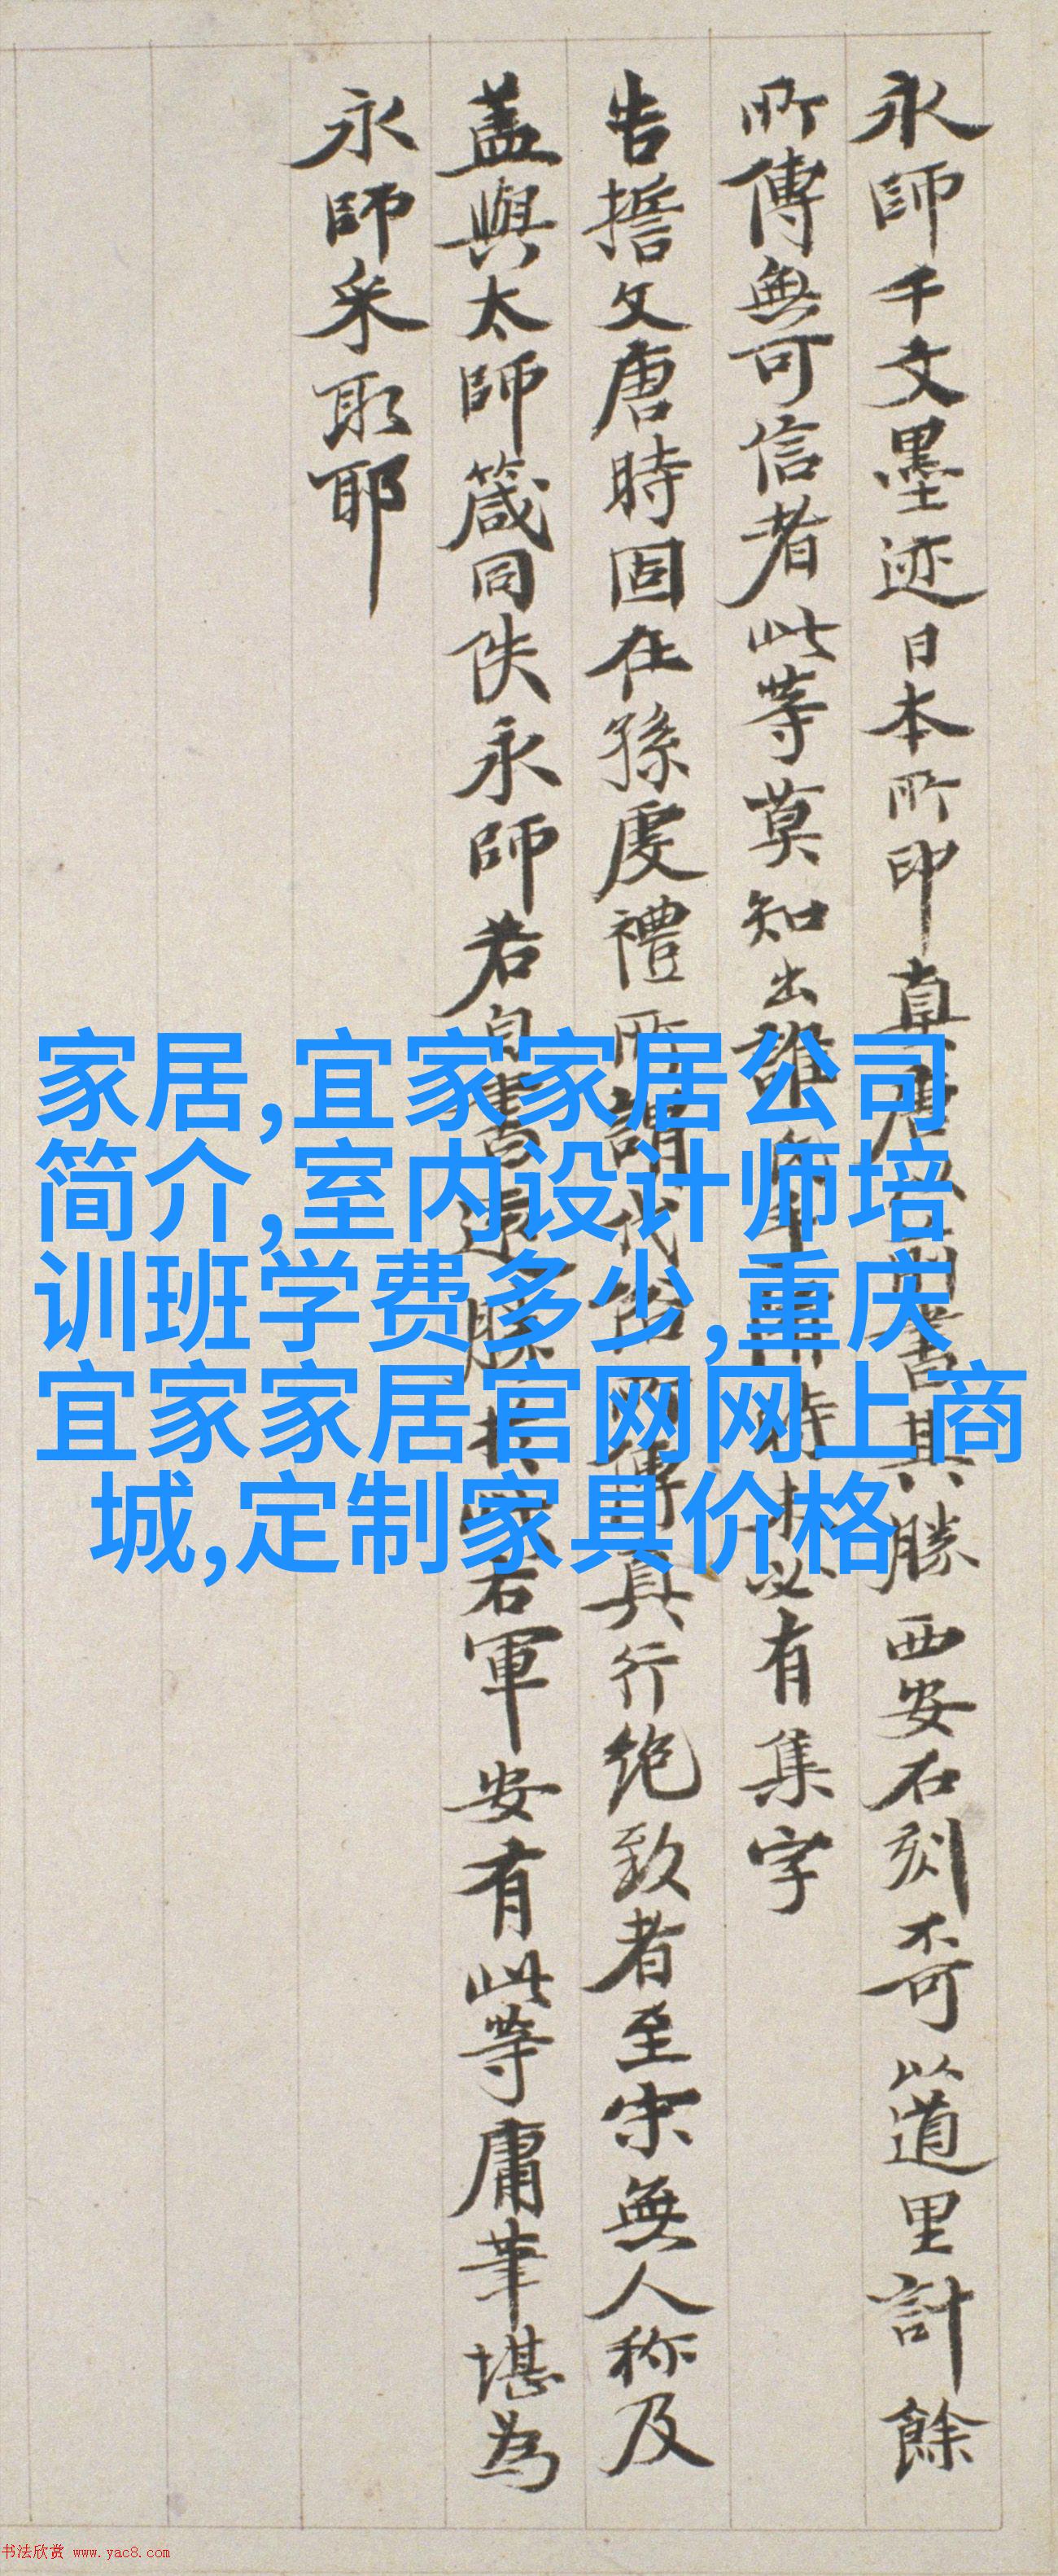 永師千文墨迹日本所印真唐人書其勝西安石刻奇以道里計餘
所傳無可信者此等莫知出誰有集字
告誓文唐時固在孫虔禮所謂代真行絶致者至宋無人称及
蓋與太師箴同佚永師若自書右軍安有此等庸筆堪為
永師采取耶
家居,宜家家居公司
简介,室内设计师培
训班学费多少,重庆
宜家家居官网网上商
城,定制家具价格
书法欣赏 www.yac8.com